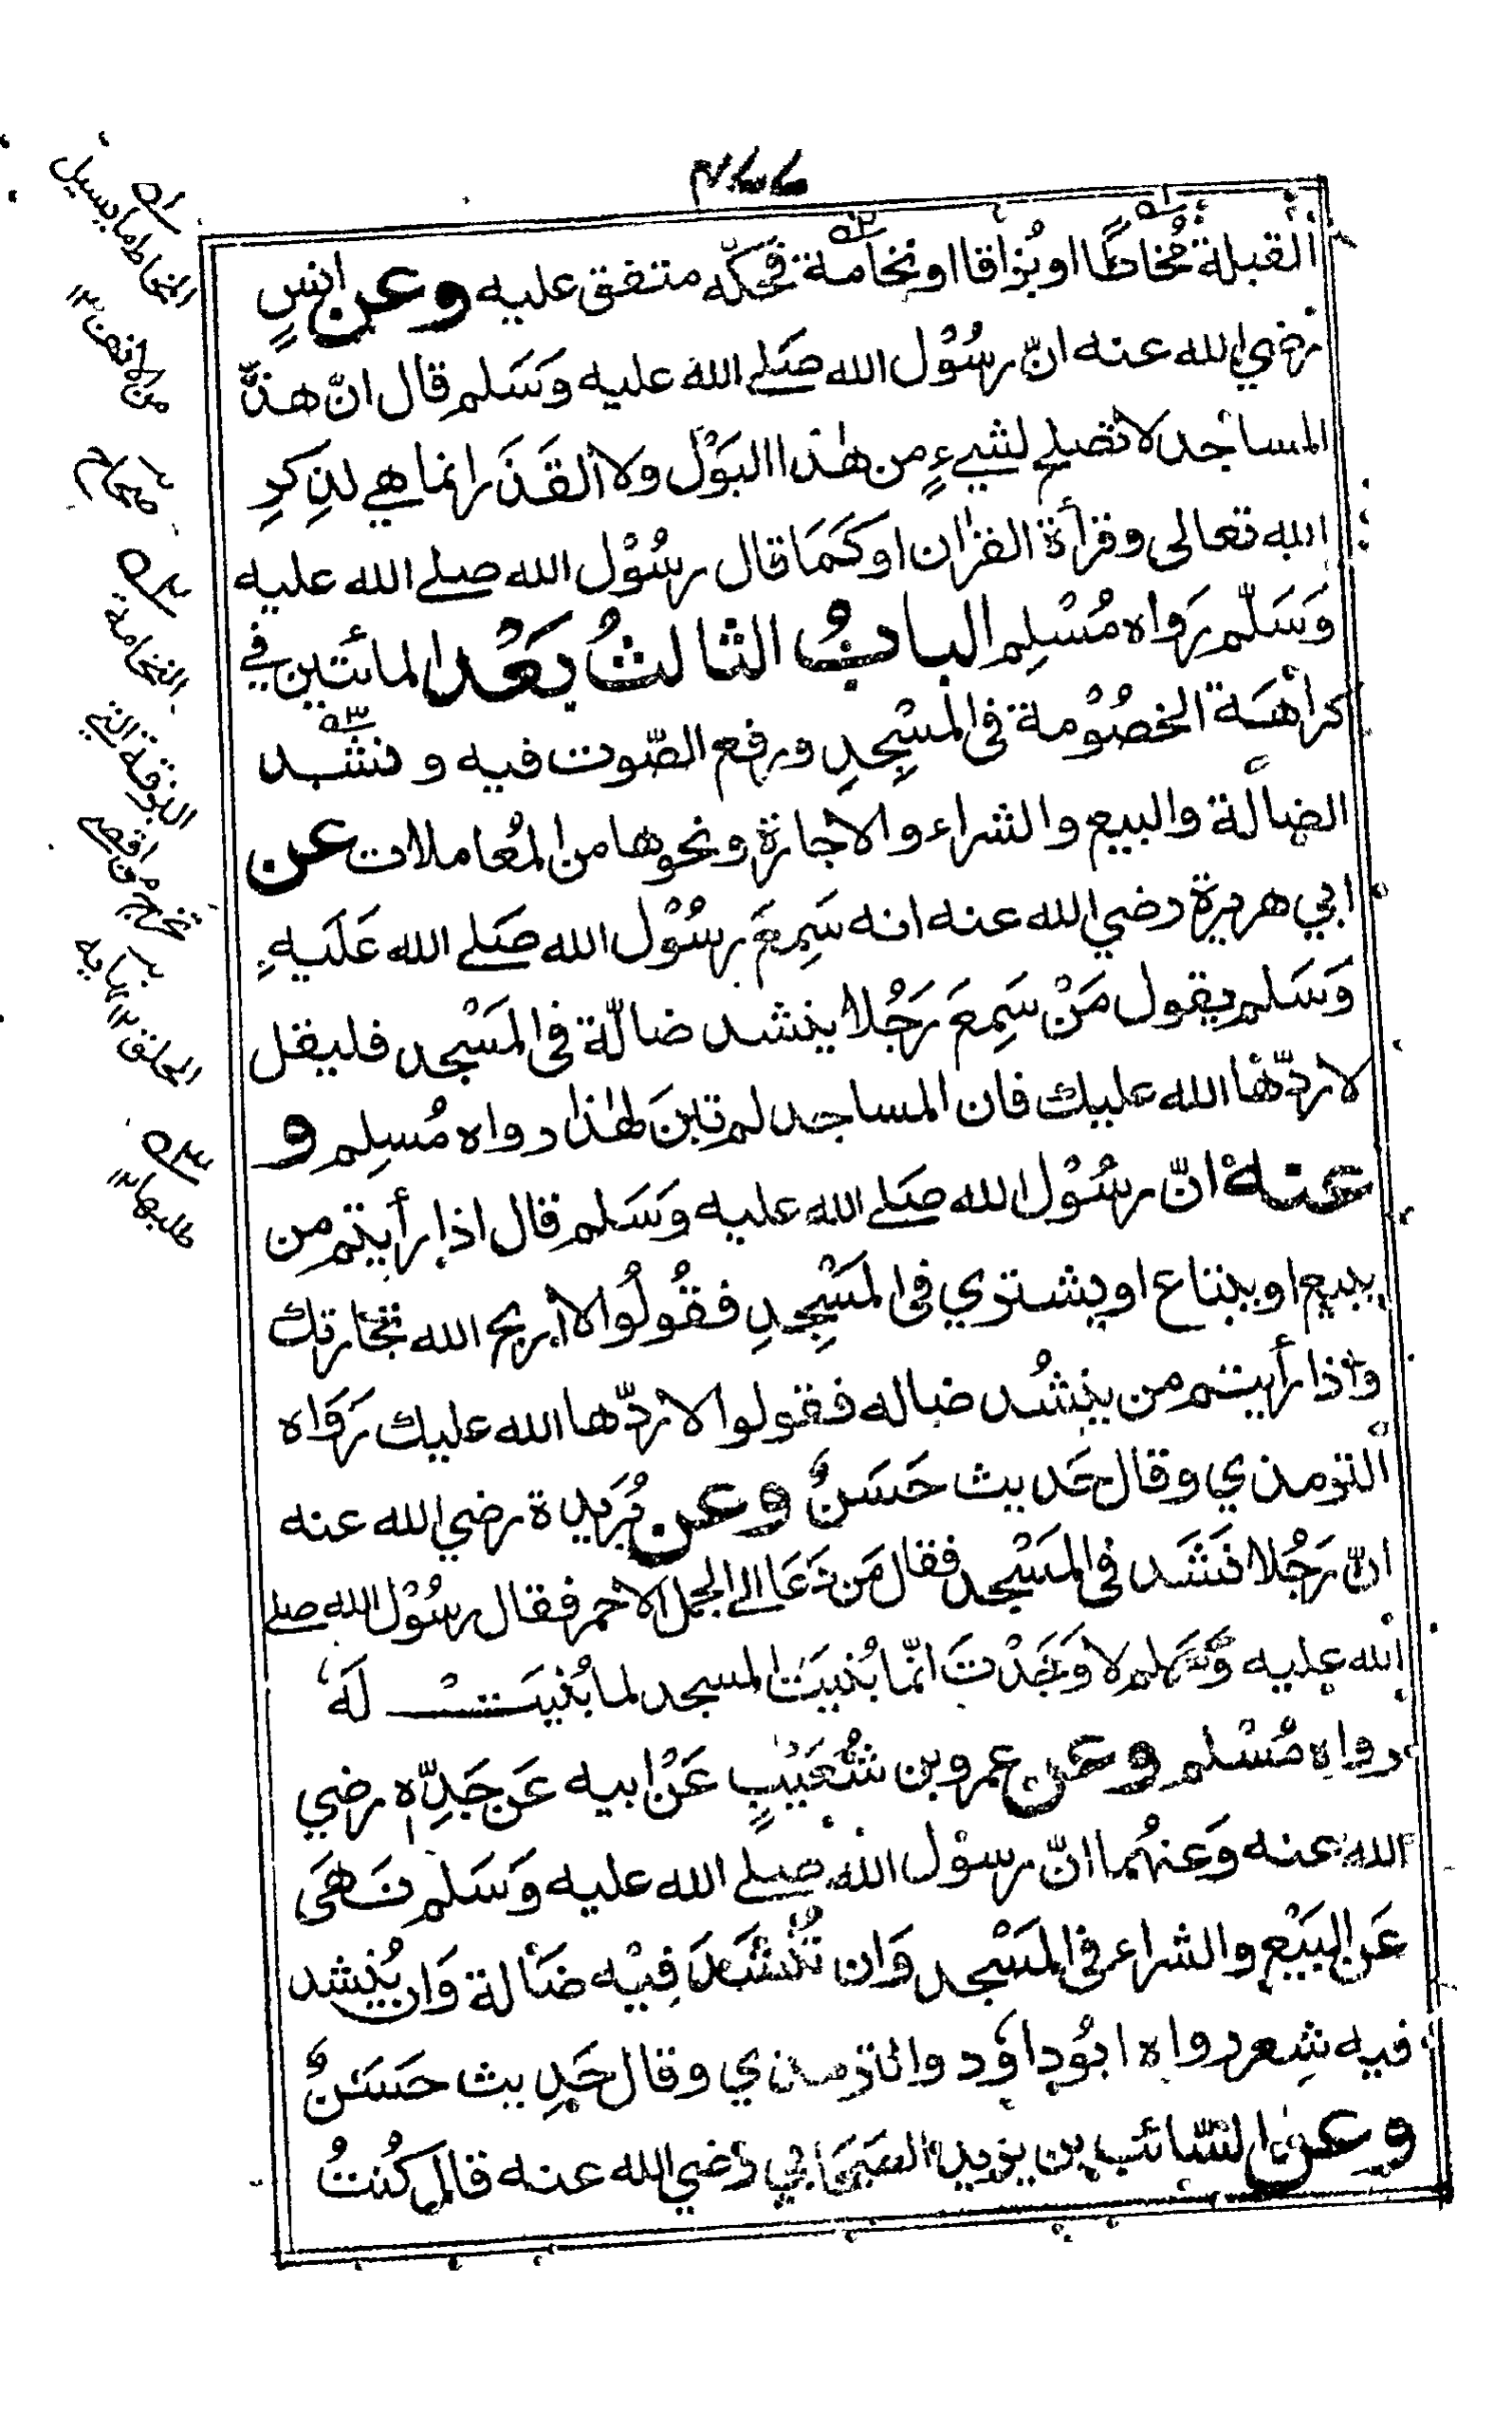 القبلة مُخاطًا او بُزاقا او نخامة فحكّه متفق عليه وعن انسٍ
رضي الله عنه انّ رسُوْل الله صَلے الله عليه وَسَلم قال انّ هذه
المساجد لا تصلح لشيءٍ من هٰذا البَوْل ولا القَذَر انما هي لذِكرِ
الله تعالى وقرأة القرٰان او كَمَا قال رسُوْل الله صلے الله عليه
وَسَلّم رَواه مُسْلِم البابُ الثالثُ بَعْد المائتين في
كراهَة الخصُوْمة فى المسْجِدِ ورفع الصّوت فيه و نشْد
الضالّة والبيع والشراء والاجارة ونحوها من المُعاملات عن
ابي هريرة رضي الله عنه انه سَمِعَ رسُوْل الله صَلے الله عَلَيهِ
وَسَلم يقول مَنْ سَمِعَ رَجُلا ينشد ضالّة فى المَسْجد فليقل
لا ردّها الله عليك فان المساجد لم تبنَ لهٰذا رواه مُسلِم و
عنه انّ رسُوْل الله صَلے الله عليه وَسَلم قال اذا رأيتم من
يبيع او يبتاع او يشتري فى المَسْجِدِ فقُولُوا لا اربح الله تجارتك
واذا رأيتم من ينشُد ضاله فقولوا لا ردّها الله عليك رَوَاه
الترمذي وقال حَديث حَسَنٌ وعن بُرَيدة رضي الله عنه
انّ رَجُلا نَشَد فى المَسْجد فقال مَن دَعَا الى الجمل الاحمر فقال رسُوْل الله صلے
الله عليه وَسَلم لا وَجَدْتَ انّما بُنيَتْ المسجد لما بُنيَتْ لَهُ
رواه مُسْلم وعن عمرو بن شُعَيْبٍ عَنْ ابيه عَن جَدِّه رضي
الله عنه وَعنهُما انّ رسوْل الله صلے الله عليه وَسَلم نَهَى
عَن البَيْع والشراء فى المَسْجد وَان تُنْشَدَ فِيْه ضَالة وَان يُنشد
فيه شِعر رواه ابُو داوٗد والترمذي وقال حَدِيث حَسَنٌ
وعن السَائب بن يزيد الصَحابي رَضي الله عنه قال كُنتُ
ه١
المخاط ما يسيل
من الانف ١٢
ه٢
النخامة
البزقة التي
تخرج من اقصى
ه٣
طلبها ١٢